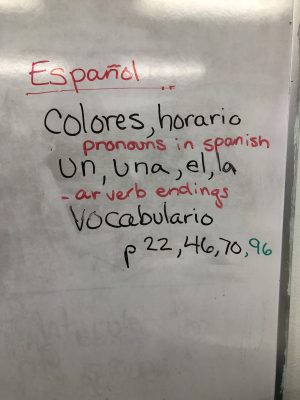 Español
Colores, horario
pronouns in spanish
un, una, el, la
-ar verb endings
Vocabulario
p 22, 46, 70, 96